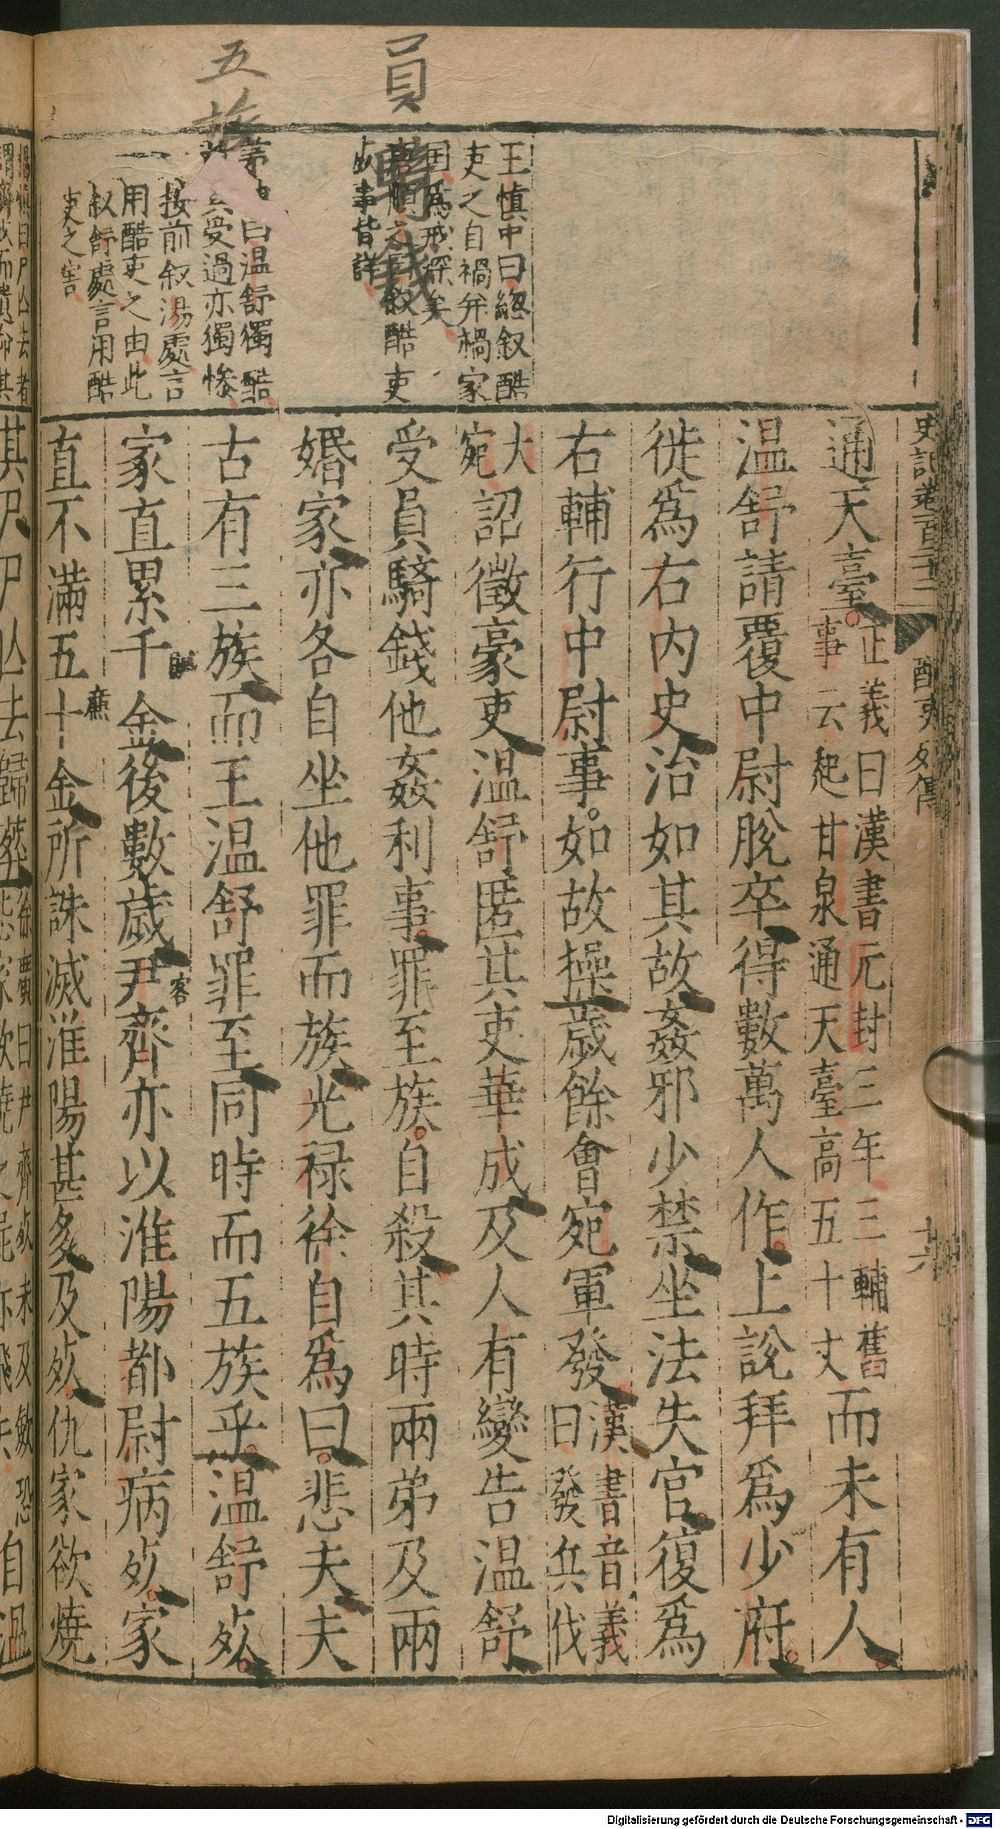 員
五族
騎錢
王慎中曰總叙酷
吏之自禍并禍家
因爲戒深矣
叙酷吏
此事皆詳
曰温舒獨酷
其受過亦獨慘
按前叙湯處言
用酷吏之由此
叙舒處言用酷
吏之害
史記卷百二十二
酷吏列傳
十六
通天臺正義曰漢書元封三年三輔舊
事云起甘泉通天臺高五十丈而未有人
温舒請覆中尉脫卒得數萬人作上說拜爲少府
徙爲右内史治如其故姦邪少禁坐法失官復爲
右輔行中尉事如故操歲餘會宛軍發漢書音義
曰發兵伐
大宛詔徵豪吏温舒匿其吏華成及人有變告温舒
受員騎錢他姦利事罪至族自殺其時兩弟及兩
婚家亦各自坐他罪而族光祿徐自爲曰悲夫夫
古有三族而王温舒罪至同時而五族乎温舒死
家直累千金後數歲尹齊亦以淮陽都尉病死家
直不滿五十金所誅滅淮陽甚多及死仇家欲燒
其尸尸亡去歸葬徐廣曰尹齊死未及斂恐
怨家欲燒之屍亦飛去自温
Digitalisierung gefördert durch die Deutsche Forschungsgemeinschaft - DFG